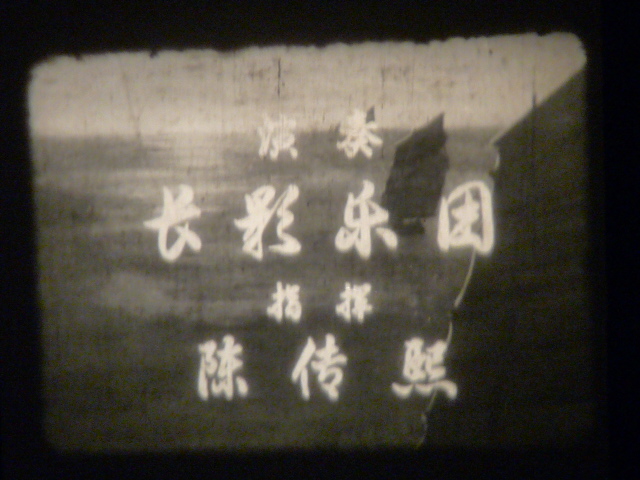 演奏
长影乐团
指挥
陈传熙